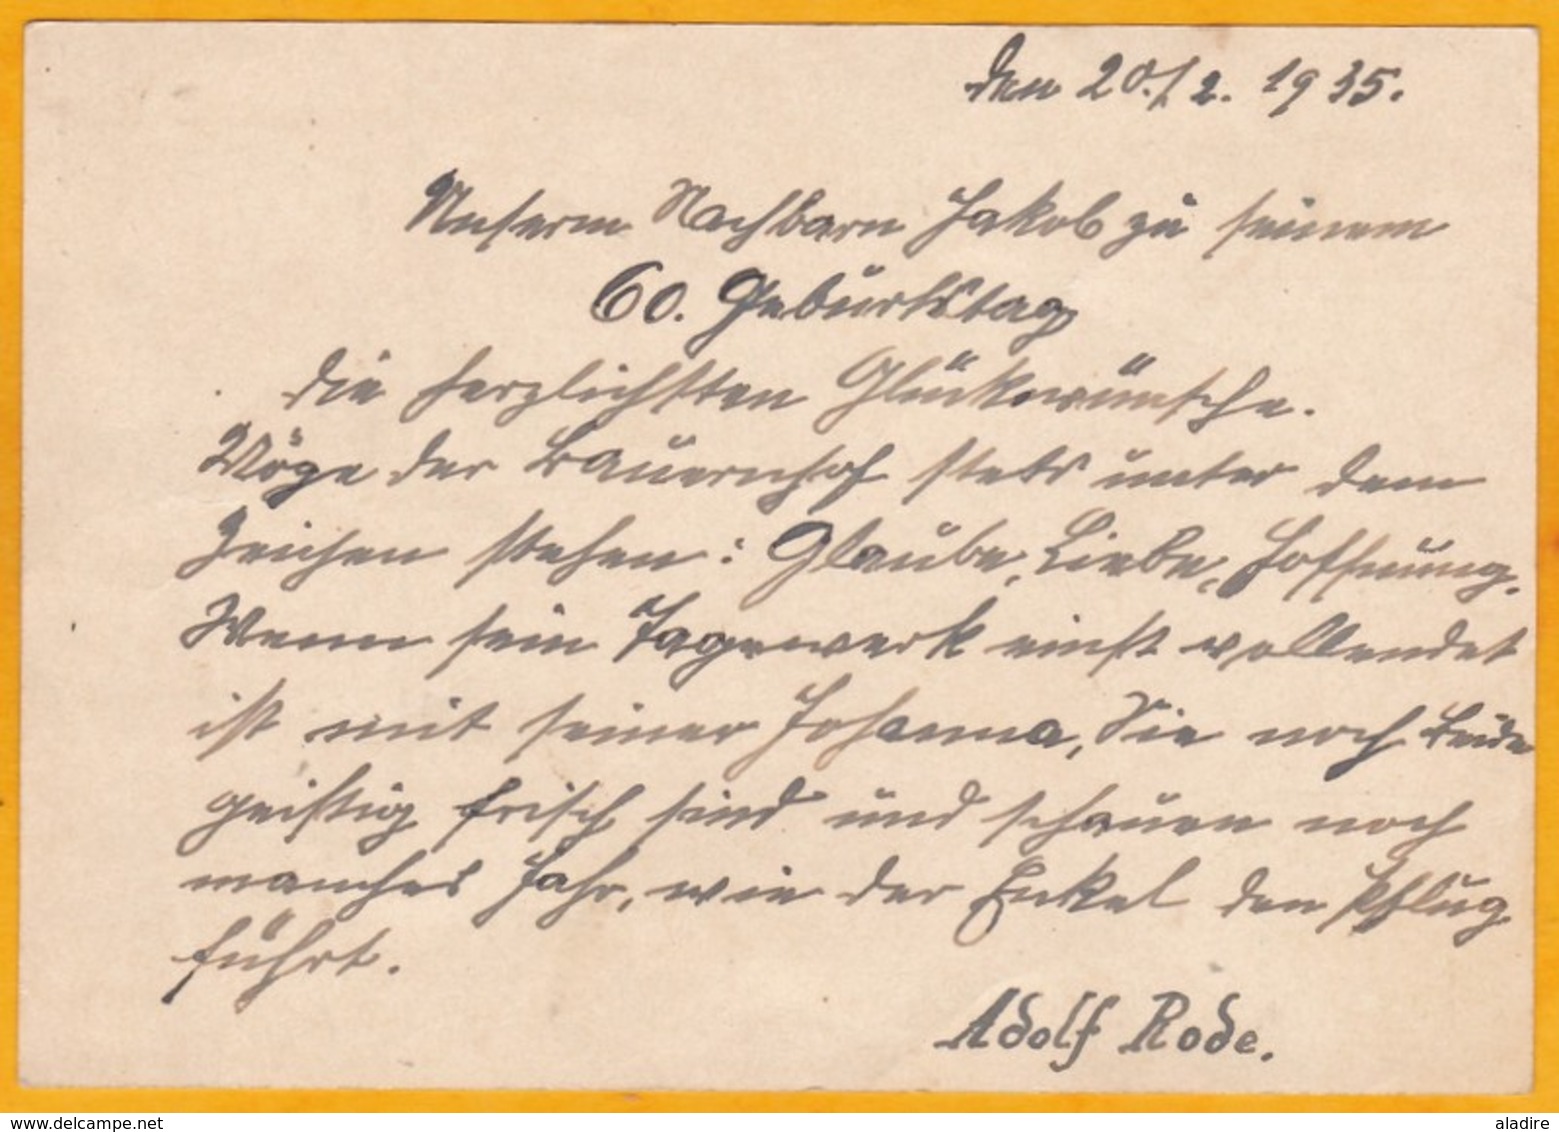 den 20./2. 1935.
Unserm Nachbarn Jakob zu seinem
60. Geburtstag
die herzlichsten Glückwünsche.
Möge der Bauernhof stets unter dem
Zeichen stehen: Glaube, Liebe, Hoffnung.
Wenn sein Tagewerk einst vollendet
ist mit seiner Johanna, Sie noch beide
geistig frisch sind und schauen noch
manches Jahr, wie der Enkel den Pflug
führt.
Adolf Rode.
www.delcampe.net
aladire